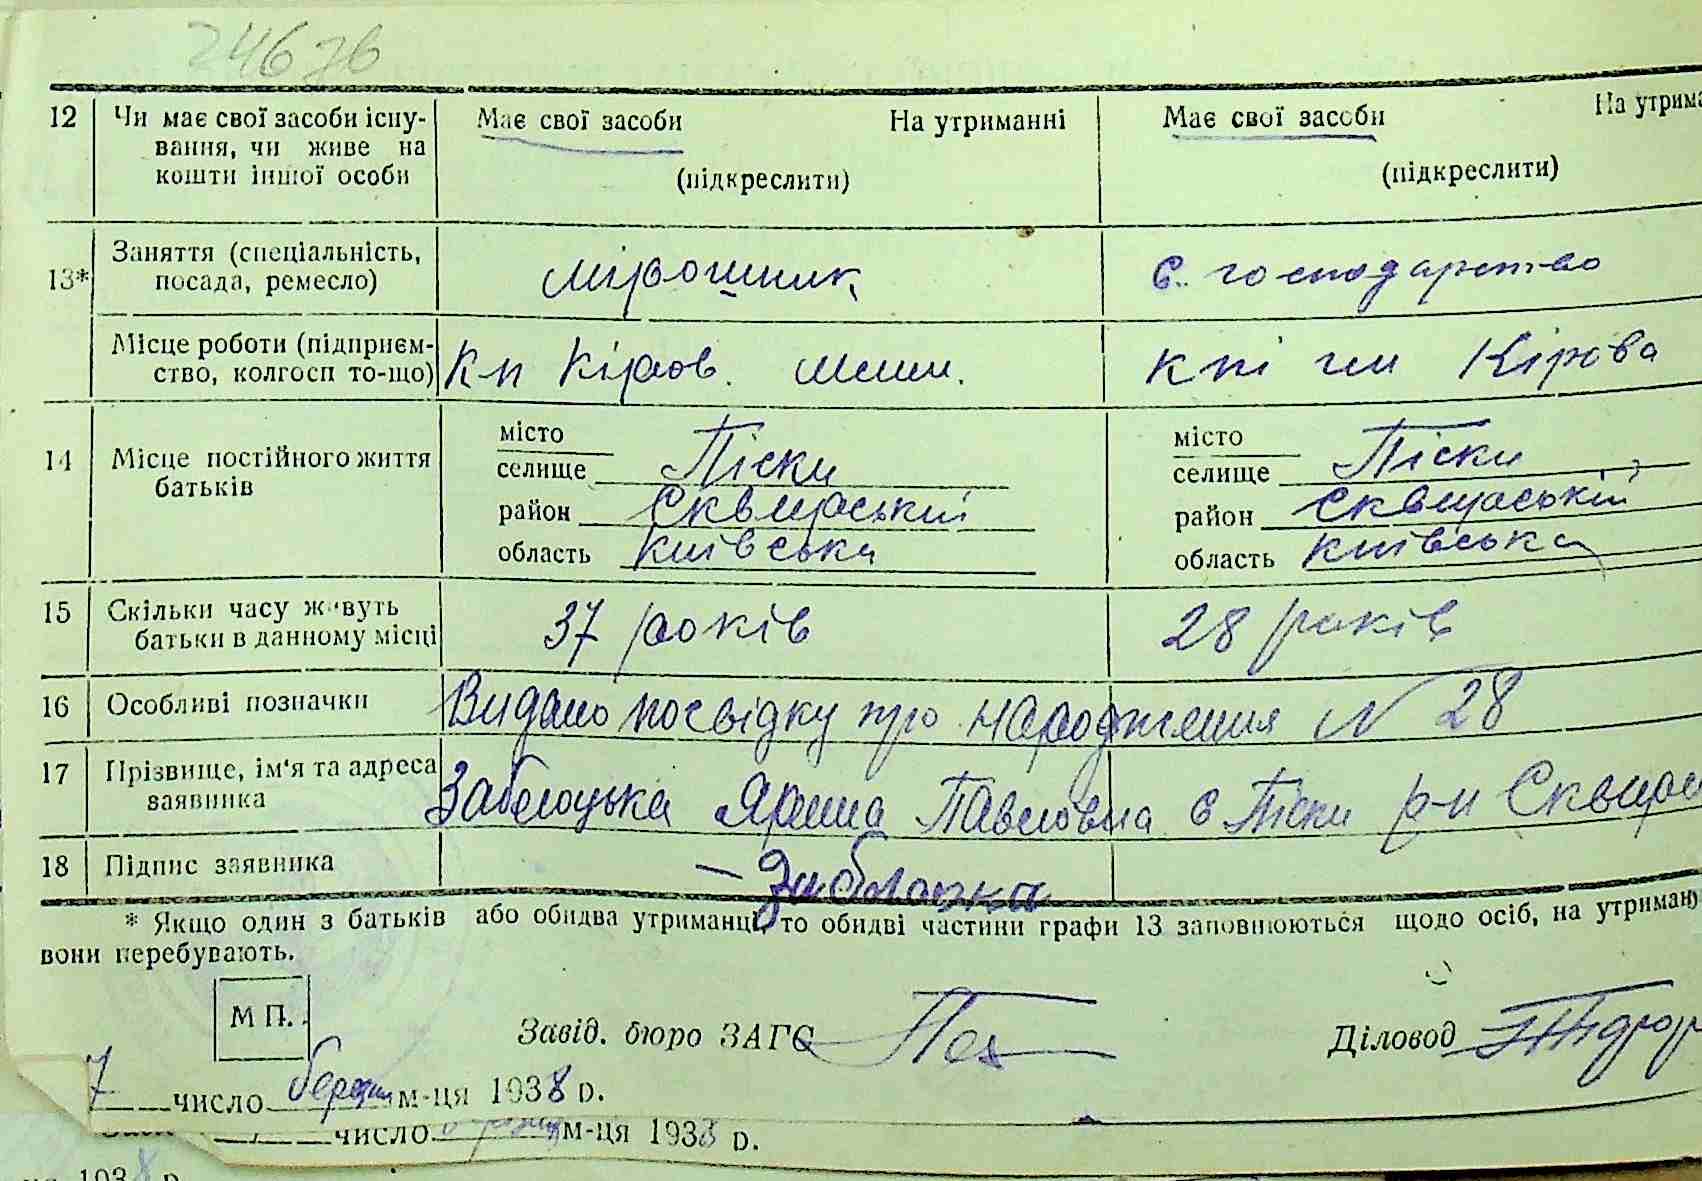 246 зв
12 Чи має свої засоби існу- Має свої засоби На утриманні Має свої засоби На утрима
вання, чи живе на
кошти іншої особи (підкреслити) (підкреслити)
13* Заняття (спеціальність, мірошник с. господарство
посада, ремесло)
Місце роботи (підприєм- К-п Кіров. млин. кпі им Кірова
ство, колгосп то-що)
14 Місце постійного життя місто місто
батьків селище Піски селище Піски
район Сквирський район Сквирський
область київська область київська
15 Скільки часу живуть 37 років 28 років
батьки в данному місці
16 Особливі позначки Видано посвідку про народження N 28
17 Прізвище, ім'я та адреса Заблоцька Ярина Павловна с Піски р-н Сквирс
заявника
18 Підпис заявника Заблоцка
* Якщо один з батьків або обидва утриманці, то обидві частини графи 13 заповнюються щодо осіб, на утриман
вони перебувають.
М П.
Завід. бюро ЗАГС Діловод
7 число березня м-ця 1938 р.
7 число березня м-ця 1938 р.
1938 р